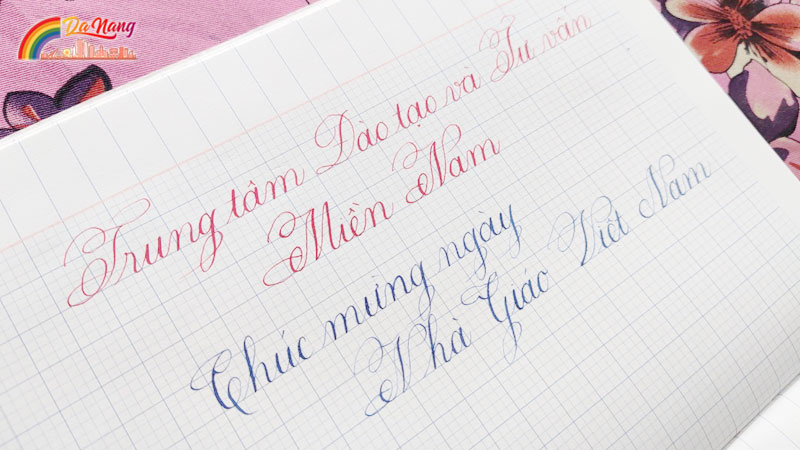 Da Nang
Trung tâm Đào tạo và Tư vấn
Miền Nam
Chúc mừng ngày
Nhà Giáo Việt Nam